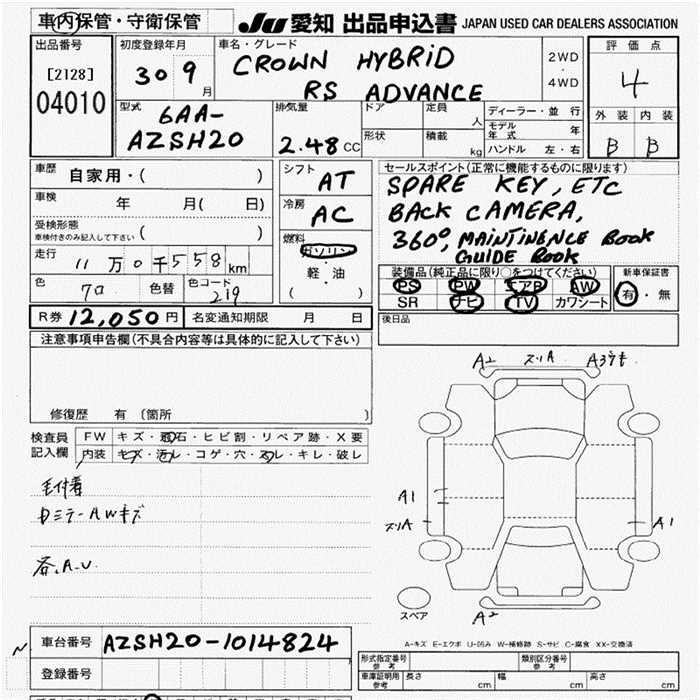 車内保管・守衛保管 JU 愛知 出品申込書 JAPAN USED CAR DEALERS ASSOCIATION
出品番号
[2128]
04010
初度登録年月
30 9 月
車名・グレード
CROWN HYBRID
RS ADVANCE
2WD
・
4WD
評価点
4
外装 内装
B B
型式
6AA-
AZSH20
排気量
2.48 CC
ドア
形状
定員 人
積載 kg
ディーラー・並行
モデル年式 年
ハンドル 左・右
車歴 自家用・( )
車検 年 月( 日)
受検形態
車検付きのみ記入して下さい ( )
走行 11万0千558km
色 クロ 色替 色コード 219
シフト AT
冷房 AC
燃料
ガソリン
・
軽・油
( )
セールスポイント(正常に機能するものに限ります)
SPARE KEY, ETC
BACK CAMERA,
360°, MAINTINENCE BOOK
GUIDE BOOK
装備品(純正品に限り○をつけてください)
PS PW エアB AW
SR ナビ TV カワシート
新車保証書
有・無
R券 12,050円 名変通知期限 月 日
後日品
注意事項申告欄(不具合内容等は具体的に記入して下さい)
修復歴 有(箇所 )
検査員
記入欄
FW キズ・飛石・ヒビ割・リペア跡・X要
内装 キズ・汚レ・コゲ・穴・スレ・キレ・破レ
毛付着
ドミラーAWキズ
各、A.U.
A2 スリA A3 キ
A1
スリA
A1
A2
スペア
A-キズ E-エクボ U-凹み W-補修跡 S-サビ C-腐食 XX-交換済
車台番号 AZSH20-1014824
登録番号
形式指定番号
参考
類別区分番号
参考
車庫証明用
参考
長さ cm 幅 cm 高さ cm